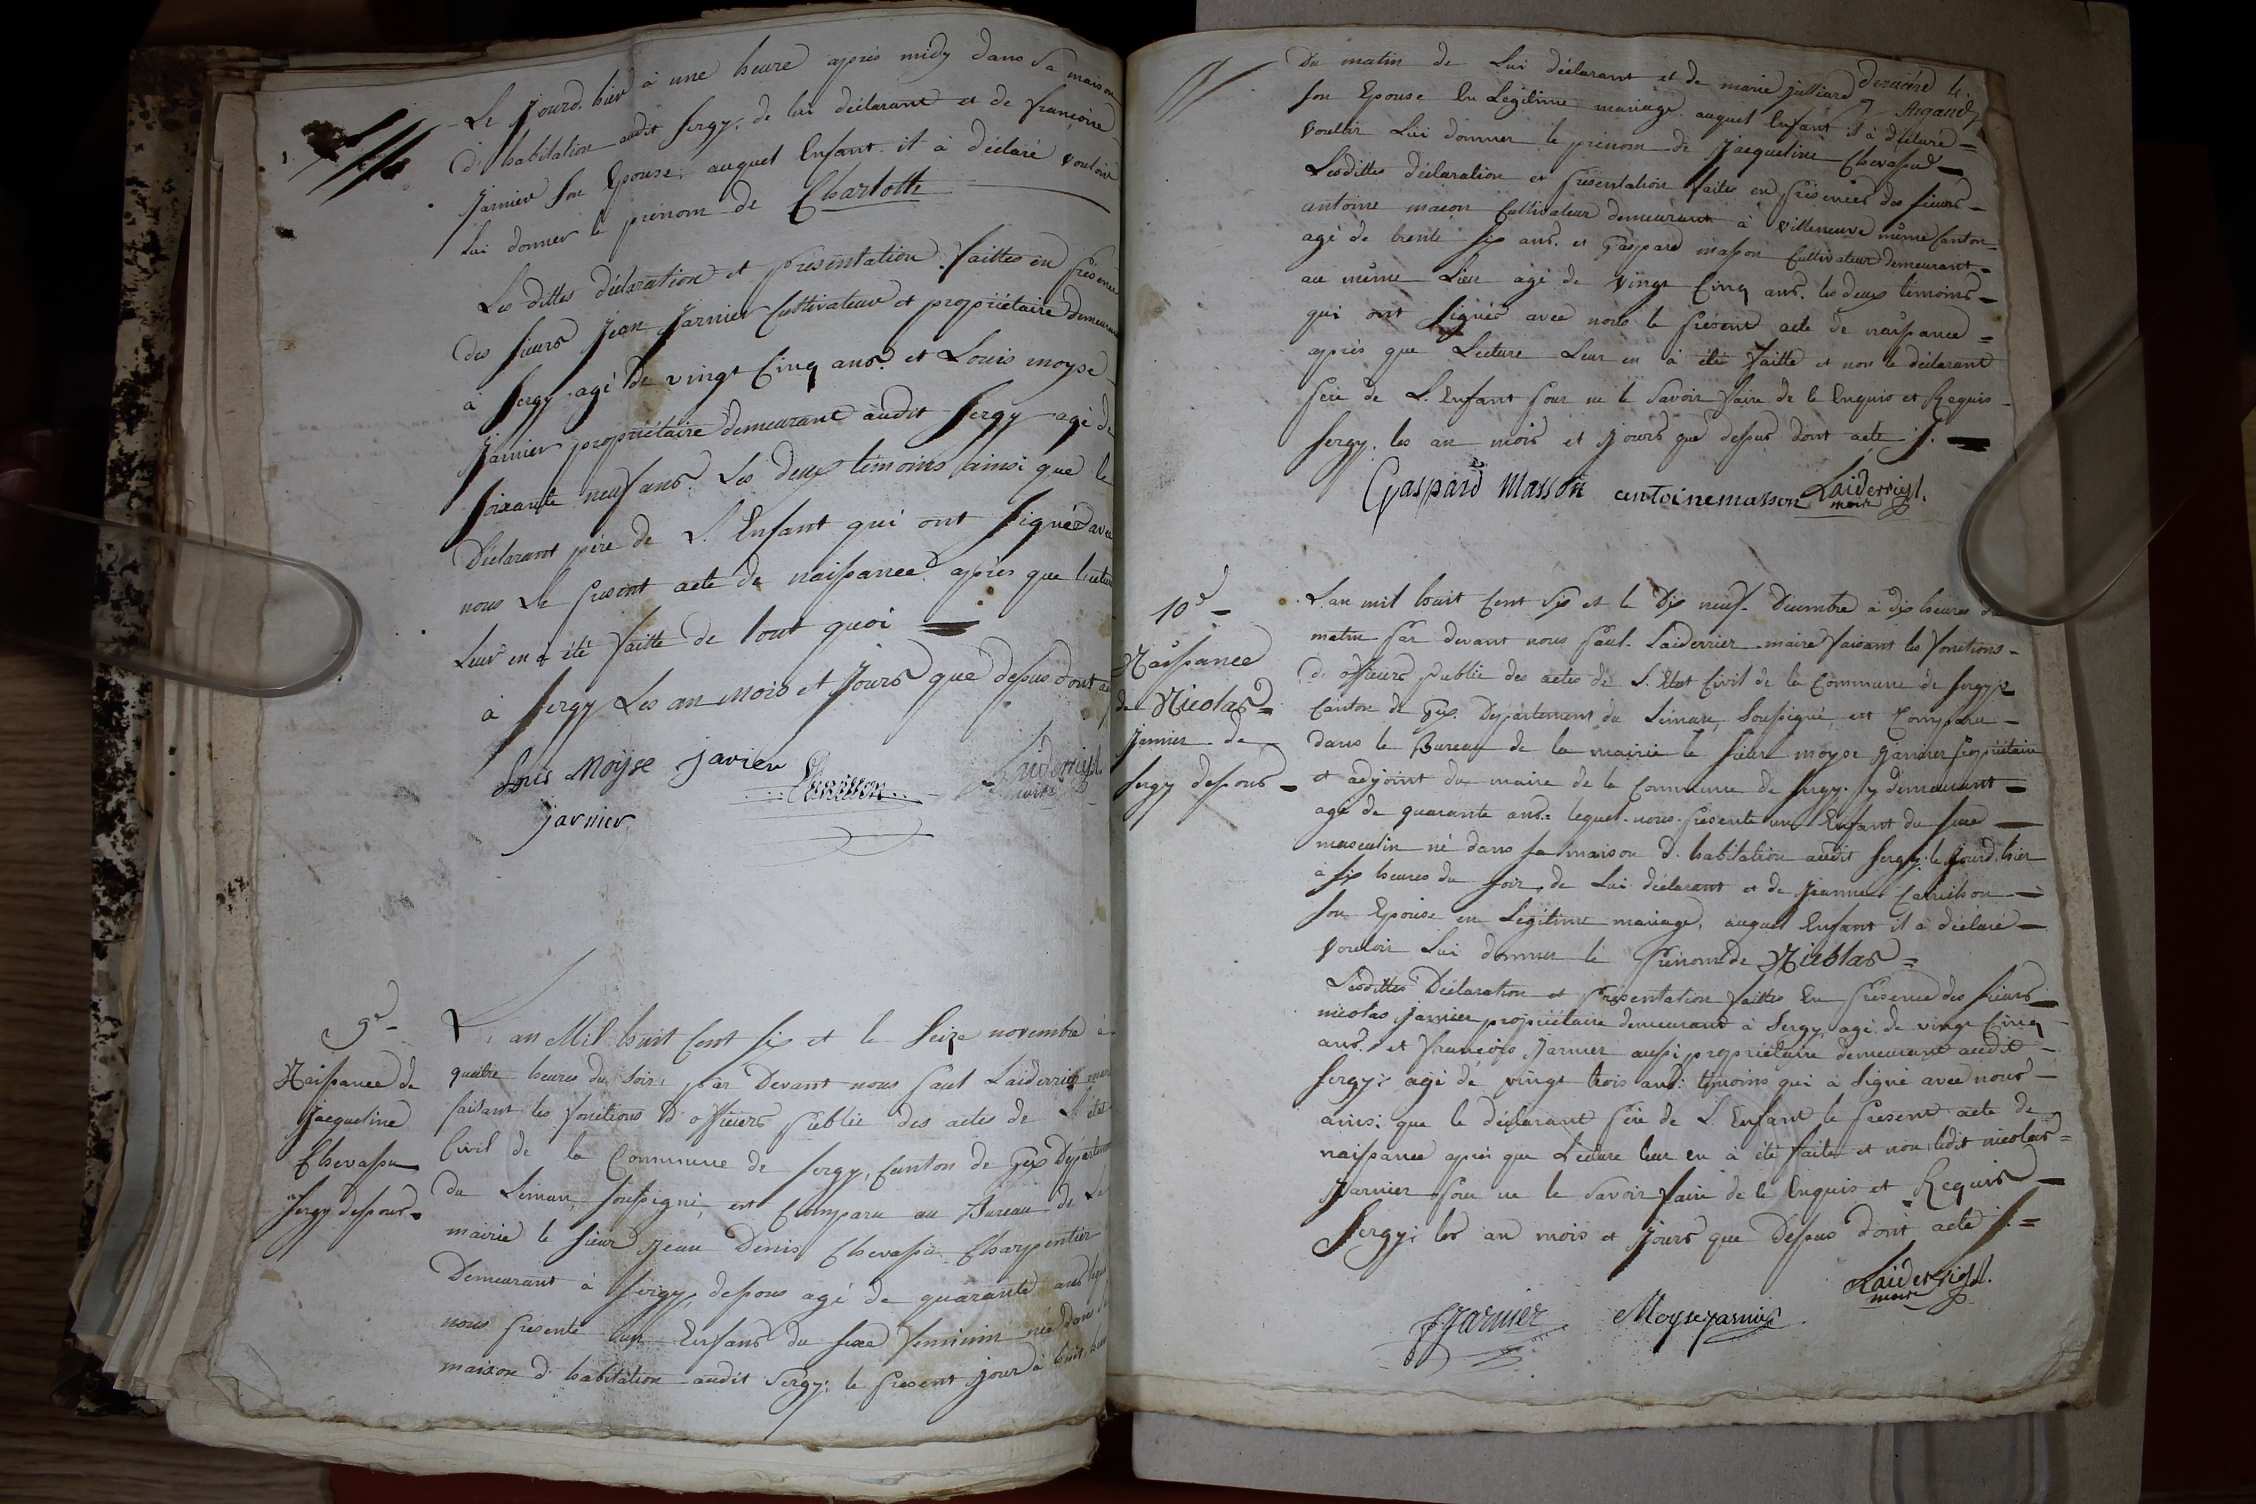 Le Jourd. hier à une heure après midy dans sa maison
d'habitation audit Sergy, de lui déclarant et de françoise
Janier son Epouse, auquel Enfant il à déclaré vouloir
Lui donner le prénom de Charlotte
Les dittes déclaration et présentation faittes en présence
des sieurs Jean Janier Cultivateur et propriétaire demeurant
à Sergy agé de vingt Cinq ans et Louis moyse
Janier propriétaire demeurant audit Sergy agé de
soixante neuf ans Les deux témoins ainsi que le
Déclarant père de L'Enfant qui ont signé avec
nous Le présent acte de naissance après que lecture
Leur en a été faitte de tout quoi
à Sergy Les an mois et Jours que dessus dont acte
Louis Moyse javier
Laiderrier
maire
jarnier
9e
Naissance de
Jacqueline
Chevassu
Sergy dessous
L'an Mil huit Cent six et le Seize novembre à
quatre heures du soir, par Devant nous Paul Laiderrier maire
faisant les fonctions d'officiers Public des actes de L'état
Civil de la Commune de Sergy, Canton de Gex Département
du Léman, soussigné, est Comparu au Bureau de La
mairie le sieur Jean Denis Chevassu Charpentier
Demeurant à Sergy, dessous agé de quarante ans lequel
nous présente un Enfans du sexe féminin née dans sa
maison d'habitation audit Sergy, le présent Jour à huit heures
Du matin de Lui déclarant et de marie julliard
son Epouse En Légitime mariage auquel Enfant il à déclaré
vouloir Lui donner le prénom de Jacqueline Chevassu
Lesdittes déclaration et présentation faites en présences des sieurs
antoine masson Cultivateur demeurant à Villeneuve même Canton
agé de trente six ans et Gaspard masson Cultivateur demeurant
au même Lieu agé de vingt Cinq ans. les deux témoins
qui ont signés avec nous le présent acte de naissance
après que Lecture Leur en à été faitte et non le déclarant
père de L'Enfant pour ne le savoir faire de le Enquis et Requis
Sergy, les an mois et Jours que dessus dont acte
Gaspard Masson antoine masson Laiderrier
maire
10e
Naissance
de Nicolas
Janier de
Sergy dessous
L'an mil huit Cent six et le Dix neuf Décembre à dix heures du
matin par devant nous Paul Laiderrier maire faisant les fonctions
d'officiers Public des actes de L'Etat Civil de la Commune de Sergy
Canton de Gex Département du Léman, soussigné, est Comparu
dans le Bureau de la mairie le sieur moyse Janier propriétaire
et adjoint du maire de la Commune de Sergy y demeurant
agé de quarante ans lequel nous présente un Enfant du sexe
masculin né dans sa maison d'habitation audit Sergy le Jourd. hier
à six heures du soir, de Lui déclarant et de Jeanne
son Epouse en Légitime mariage, auquel Enfant il à déclaré
vouloir Lui donner le Prénom de Nicolas
Lesdittes Déclaration et présentation faittes En présence des sieurs
nicolas Janier propriétaire demeurant à Sergy agé de vingt Cinq
ans et françois Janier aussi propriétaire demeurant audit
Sergy agé de vingt trois ans témoins qui à signé avec nous
ainsi que le déclarant père de L'Enfant le présent acte de
naissance après que Lecture leur en à été faite et non ledit nicolas
Janier pour ne le savoir faire de le Enquis et Requis
Sergy, les an mois et Jours que Dessus dont acte
Laiderrier
maire
fJarnier Moyse janier